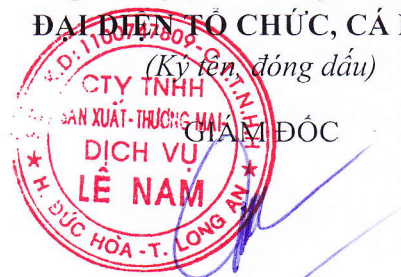 ĐẠI DIỆN TỔ CHỨC, CÁ
(Ký tên, đóng dấu)
GIÁM ĐỐC
CTY TNHH
SẢN XUẤT - THƯƠNG MẠI
DỊCH VỤ
LÊ NAM
H. ĐỨC HÒA - T. LONG AN